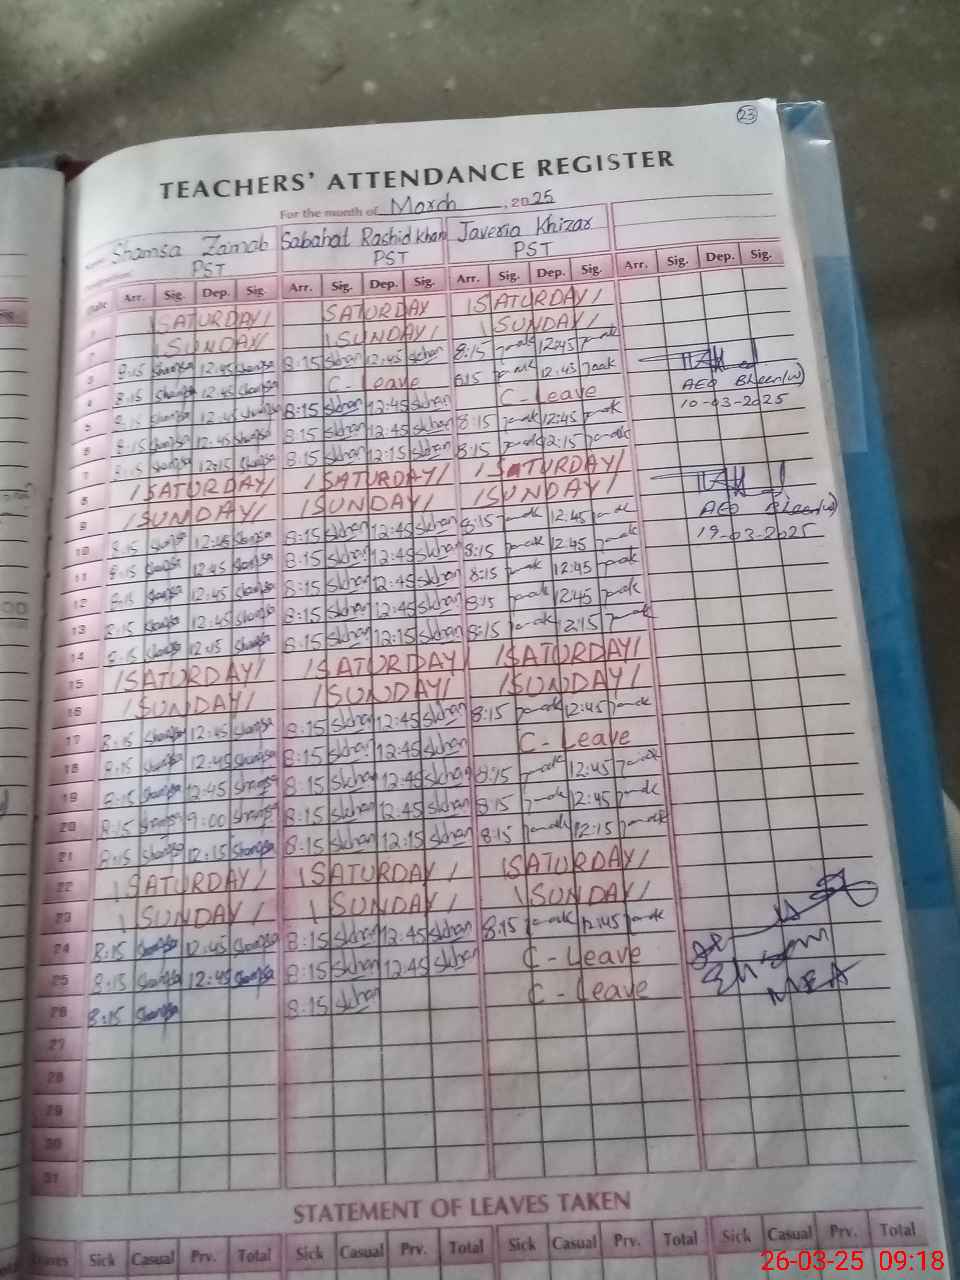 23
TEACHERS' ATTENDANCE REGISTER
For the month of March, 2025
Shamsa Zainab Sabahat Rashid Khan Javeria Khizar
PST PST PST
Date Arr. Sig. Dep. Sig. Arr. Sig. Dep. Sig. Arr. Sig. Dep. Sig. Arr. Sig. Dep. Sig.
1 SATURDAY SATURDAY SATURDAY
2 SUNDAY SUNDAY SUNDAY
3 8:15 Shamsa 12:45 Shamsa 8:15 Skhan 12:45 Skhan 8:15 12:45
4 8:15 Shamsa 12:45 Shamsa C - Leave 8:15 12:45
5 8:15 Shamsa 12:45 Shamsa 8:15 Skhan 12:45 Skhan C - Leave
6 8:15 Shamsa 12:45 Shamsa 8:15 Skhan 12:45 Skhan 8:15 12:45
7 8:15 Shamsa 12:15 Shamsa 8:15 Skhan 12:15 Skhan 8:15 12:15
AEO
10-03-2025
8 SATURDAY SATURDAY SATURDAY
9 SUNDAY SUNDAY SUNDAY
10 8:15 Shamsa 12:45 Shamsa 8:15 Skhan 12:45 Skhan 8:15 12:45
11 8:15 Shamsa 12:45 Shamsa 8:15 Skhan 12:45 Skhan 8:15 12:45
12 8:15 Shamsa 12:45 Shamsa 8:15 Skhan 12:45 Skhan 8:15 12:45
13 8:15 Shamsa 12:45 Shamsa 8:15 Skhan 12:45 Skhan 8:15 12:45
14 8:15 Shamsa 12:15 Shamsa 8:15 Skhan 12:15 Skhan 8:15 12:15
AEO
19-03-2025
15 SATURDAY SATURDAY SATURDAY
16 SUNDAY SUNDAY SUNDAY
17 8:15 Shamsa 12:45 Shamsa 8:15 Skhan 12:45 Skhan 8:15 12:45
18 8:15 Shamsa 12:45 Shamsa 8:15 Skhan 12:45 Skhan C - Leave
19 8:15 Shamsa 12:45 Shamsa 8:15 Skhan 12:45 Skhan 8:15 12:45
20 8:15 Shamsa 9:00 Shamsa 8:15 Skhan 12:45 Skhan 8:15 12:45
21 8:15 Shamsa 12:15 Shamsa 8:15 Skhan 12:15 Skhan 8:15 12:15
22 SATURDAY SATURDAY SATURDAY
23 SUNDAY SUNDAY SUNDAY
24 8:15 Shamsa 12:45 Shamsa 8:15 Skhan 12:45 Skhan 8:15 12:45
25 8:15 Shamsa 12:45 Shamsa 8:15 Skhan 12:45 Skhan C - Leave
26 8:15 Shamsa 8:15 Skhan C - Leave
MEA
27
28
29
30
31
STATEMENT OF LEAVES TAKEN
Leaves Sick Casual Prv. Total Sick Casual Prv. Total Sick Casual Prv. Total Sick Casual Prv. Total
26-03-25 09:18